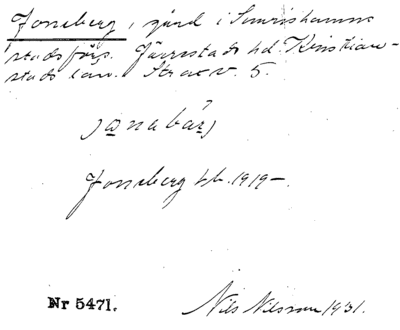 Joneberg, gård i Simrishamns
stadsförs. Järrestads hd. Kristian-
stads län.
Joneberg hb. 1919-.
Nr 5471.
Nils Nilsson 1931.